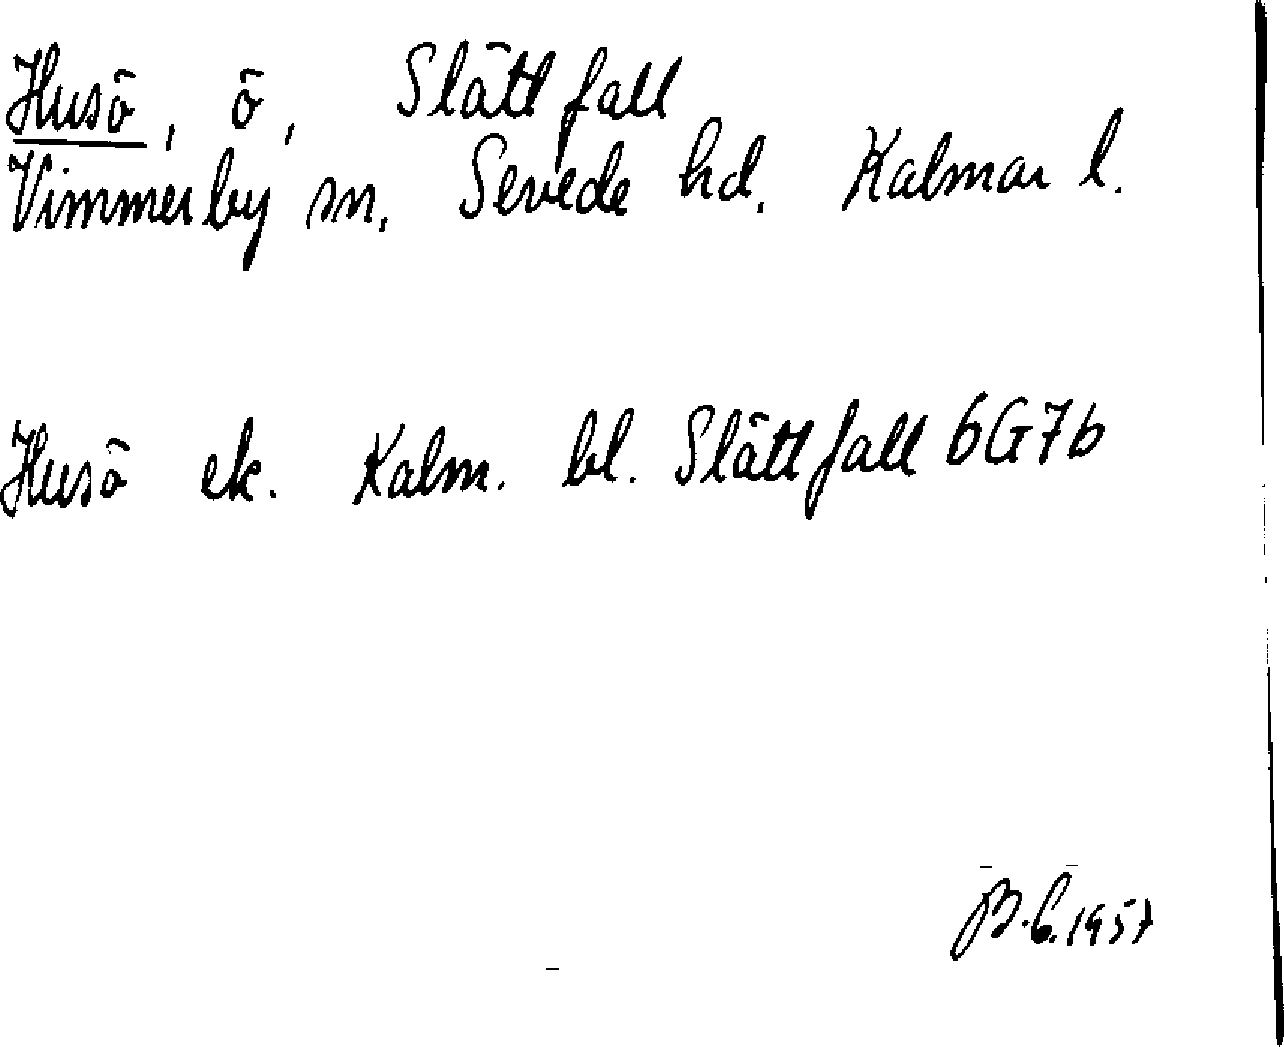 Husö, ö, Slätt fall
Vimmerby sn. Sevede hd. Kalmar l.
Husö ek. Kalm. bl. Slätt fall 6G7b
1957